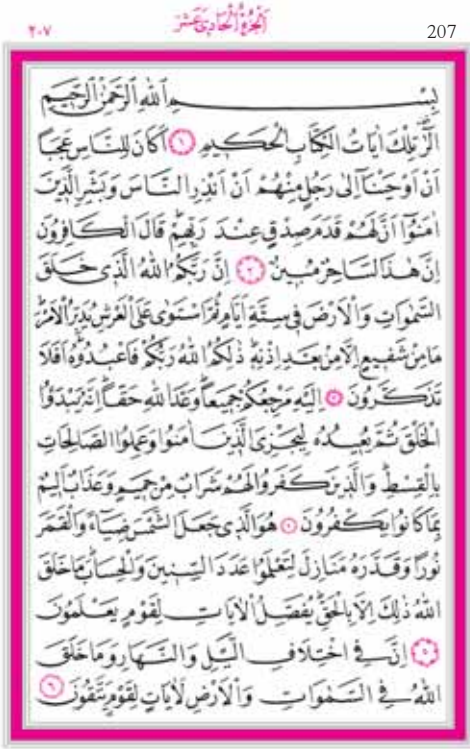 ٢٠٧ اَلْجُزْءُ الْحَادِى عَشَرَ 207
بِسْمِ اللّٰهِ الرَّحْمٰنِ الرَّحِيمِ
الٓرٰ تِلْكَ اٰيَاتُ الْكِتَابِ الْحَكِيمِ ﴿١﴾ اَكَانَ لِلنَّاسِ عَجَبًا
اَنْ اَوْحَيْنَٓا اِلٰى رَجُلٍ مِنْهُمْ اَنْ اَنْذِرِ النَّاسَ وَبَشِّرِ الَّذِينَ
اٰمَنُٓوا اَنَّ لَهُمْ قَدَمَ صِدْقٍ عِنْدَ رَبِّهِمْ قَالَ الْكَافِرُونَ
اِنَّ هٰذَا لَسَاحِرٌ مُبِينٌ ﴿٢﴾ اِنَّ رَبَّكُمُ اللّٰهُ الَّذِى خَلَقَ
السَّمٰوَاتِ وَالْاَرْضَ فِى سِتَّةِ اَيَّامٍ ثُمَّ اسْتَوٰى عَلَى الْعَرْشِ يُدَبِّرُ الْاَمْرَ
مَا مِنْ شَفِيعٍ اِلَّا مِنْ بَعْدِ اِذْنِهِ ذٰلِكُمُ اللّٰهُ رَبُّكُمْ فَاعْبُدُوهُ اَفَلَا
تَذَكَّرُونَ ﴿٣﴾ اِلَيْهِ مَرْجِعُكُمْ جَمِيعًا وَعْدَ اللّٰهِ حَقًّا اِنَّهُ يَبْدَؤُا
الْخَلْقَ ثُمَّ يُعِيدُهُ لِيَجْزِىَ الَّذِينَ اٰمَنُوا وَعَمِلُوا الصَّالِحَاتِ
بِالْقِسْطِ وَالَّذِينَ كَفَرُوا لَهُمْ شَرَابٌ مِنْ حَمِيمٍ وَعَذَابٌ اَلِيمٌ
بِمَا كَانُوا يَكْفُرُونَ ﴿٤﴾ هُوَ الَّذِى جَعَلَ الشَّمْسَ ضِيَٓاءً وَالْقَمَرَ
نُورًا وَقَدَّرَهُ مَنَازِلَ لِتَعْلَمُوا عَدَدَ السِّنِينَ وَالْحِسَابَ مَا خَلَقَ
اللّٰهُ ذٰلِكَ اِلَّا بِالْحَقِّ يُفَصِّلُ الْاٰيَاتِ لِقَوْمٍ يَعْلَمُونَ
﴿٥﴾ اِنَّ فِى اخْتِلَافِ الَّيْلِ وَالنَّهَارِ وَمَا خَلَقَ
اللّٰهُ فِى السَّمٰوَاتِ وَالْاَرْضِ لَاٰيَاتٍ لِقَوْمٍ يَتَّقُونَ ﴿٦﴾